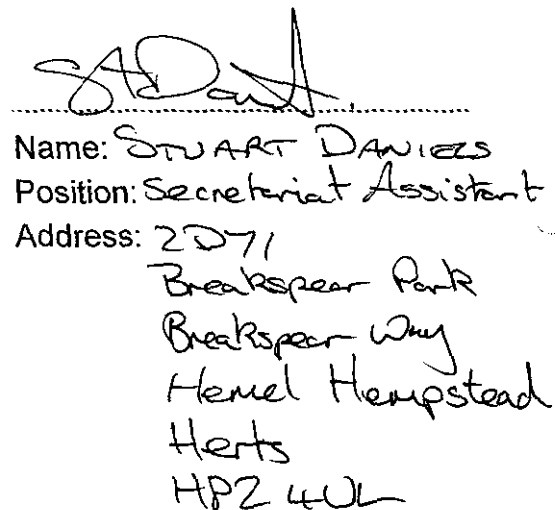 Name: STUART DANIELS
Position: Secretariat Assistant
Address: 2D71
Breakspear Park
Breakspear Way
Hemel Hempstead
Herts
HP2 4UL